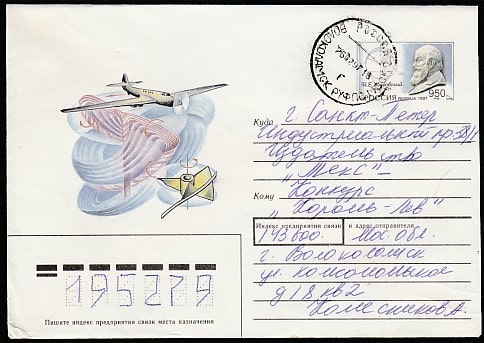 РОССИЯ
ВОЛОКОЛАМСК
Н.Е. Жуковский
РОССИЯ ROSSIJA 1997
950
Куда г. Санкт-Петер
Индустриальный пр 38/1
Издательство
"Мекс" –
Кому Конкурс
"Король-Лев"
Индекс предприятия связи и адрес отправителя
143600. Мос. обл.
г. Волоколамск
ул. Комсомольская
д 18 кв 2
Колесников А.
195279
Пишите индекс предприятия связи места назначения